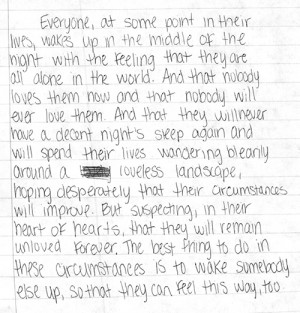 Everyone, at some point in their
lives, wakes up in the middle of the
night with the feeling that they are
all alone in the world. And that nobody
loves them now and that nobody will
ever love them. And that they will never
have a decant night's sleep again and
will spend their lives wandering bleanly
around a loveless landscape,
hoping desperately that their circumstances
will improve. But suspecting, in their
heart of hearts, that they will remain
unloved forever. The best thing to do in
these circumstances is to wake somebody
else up, so that they can feel this way, too